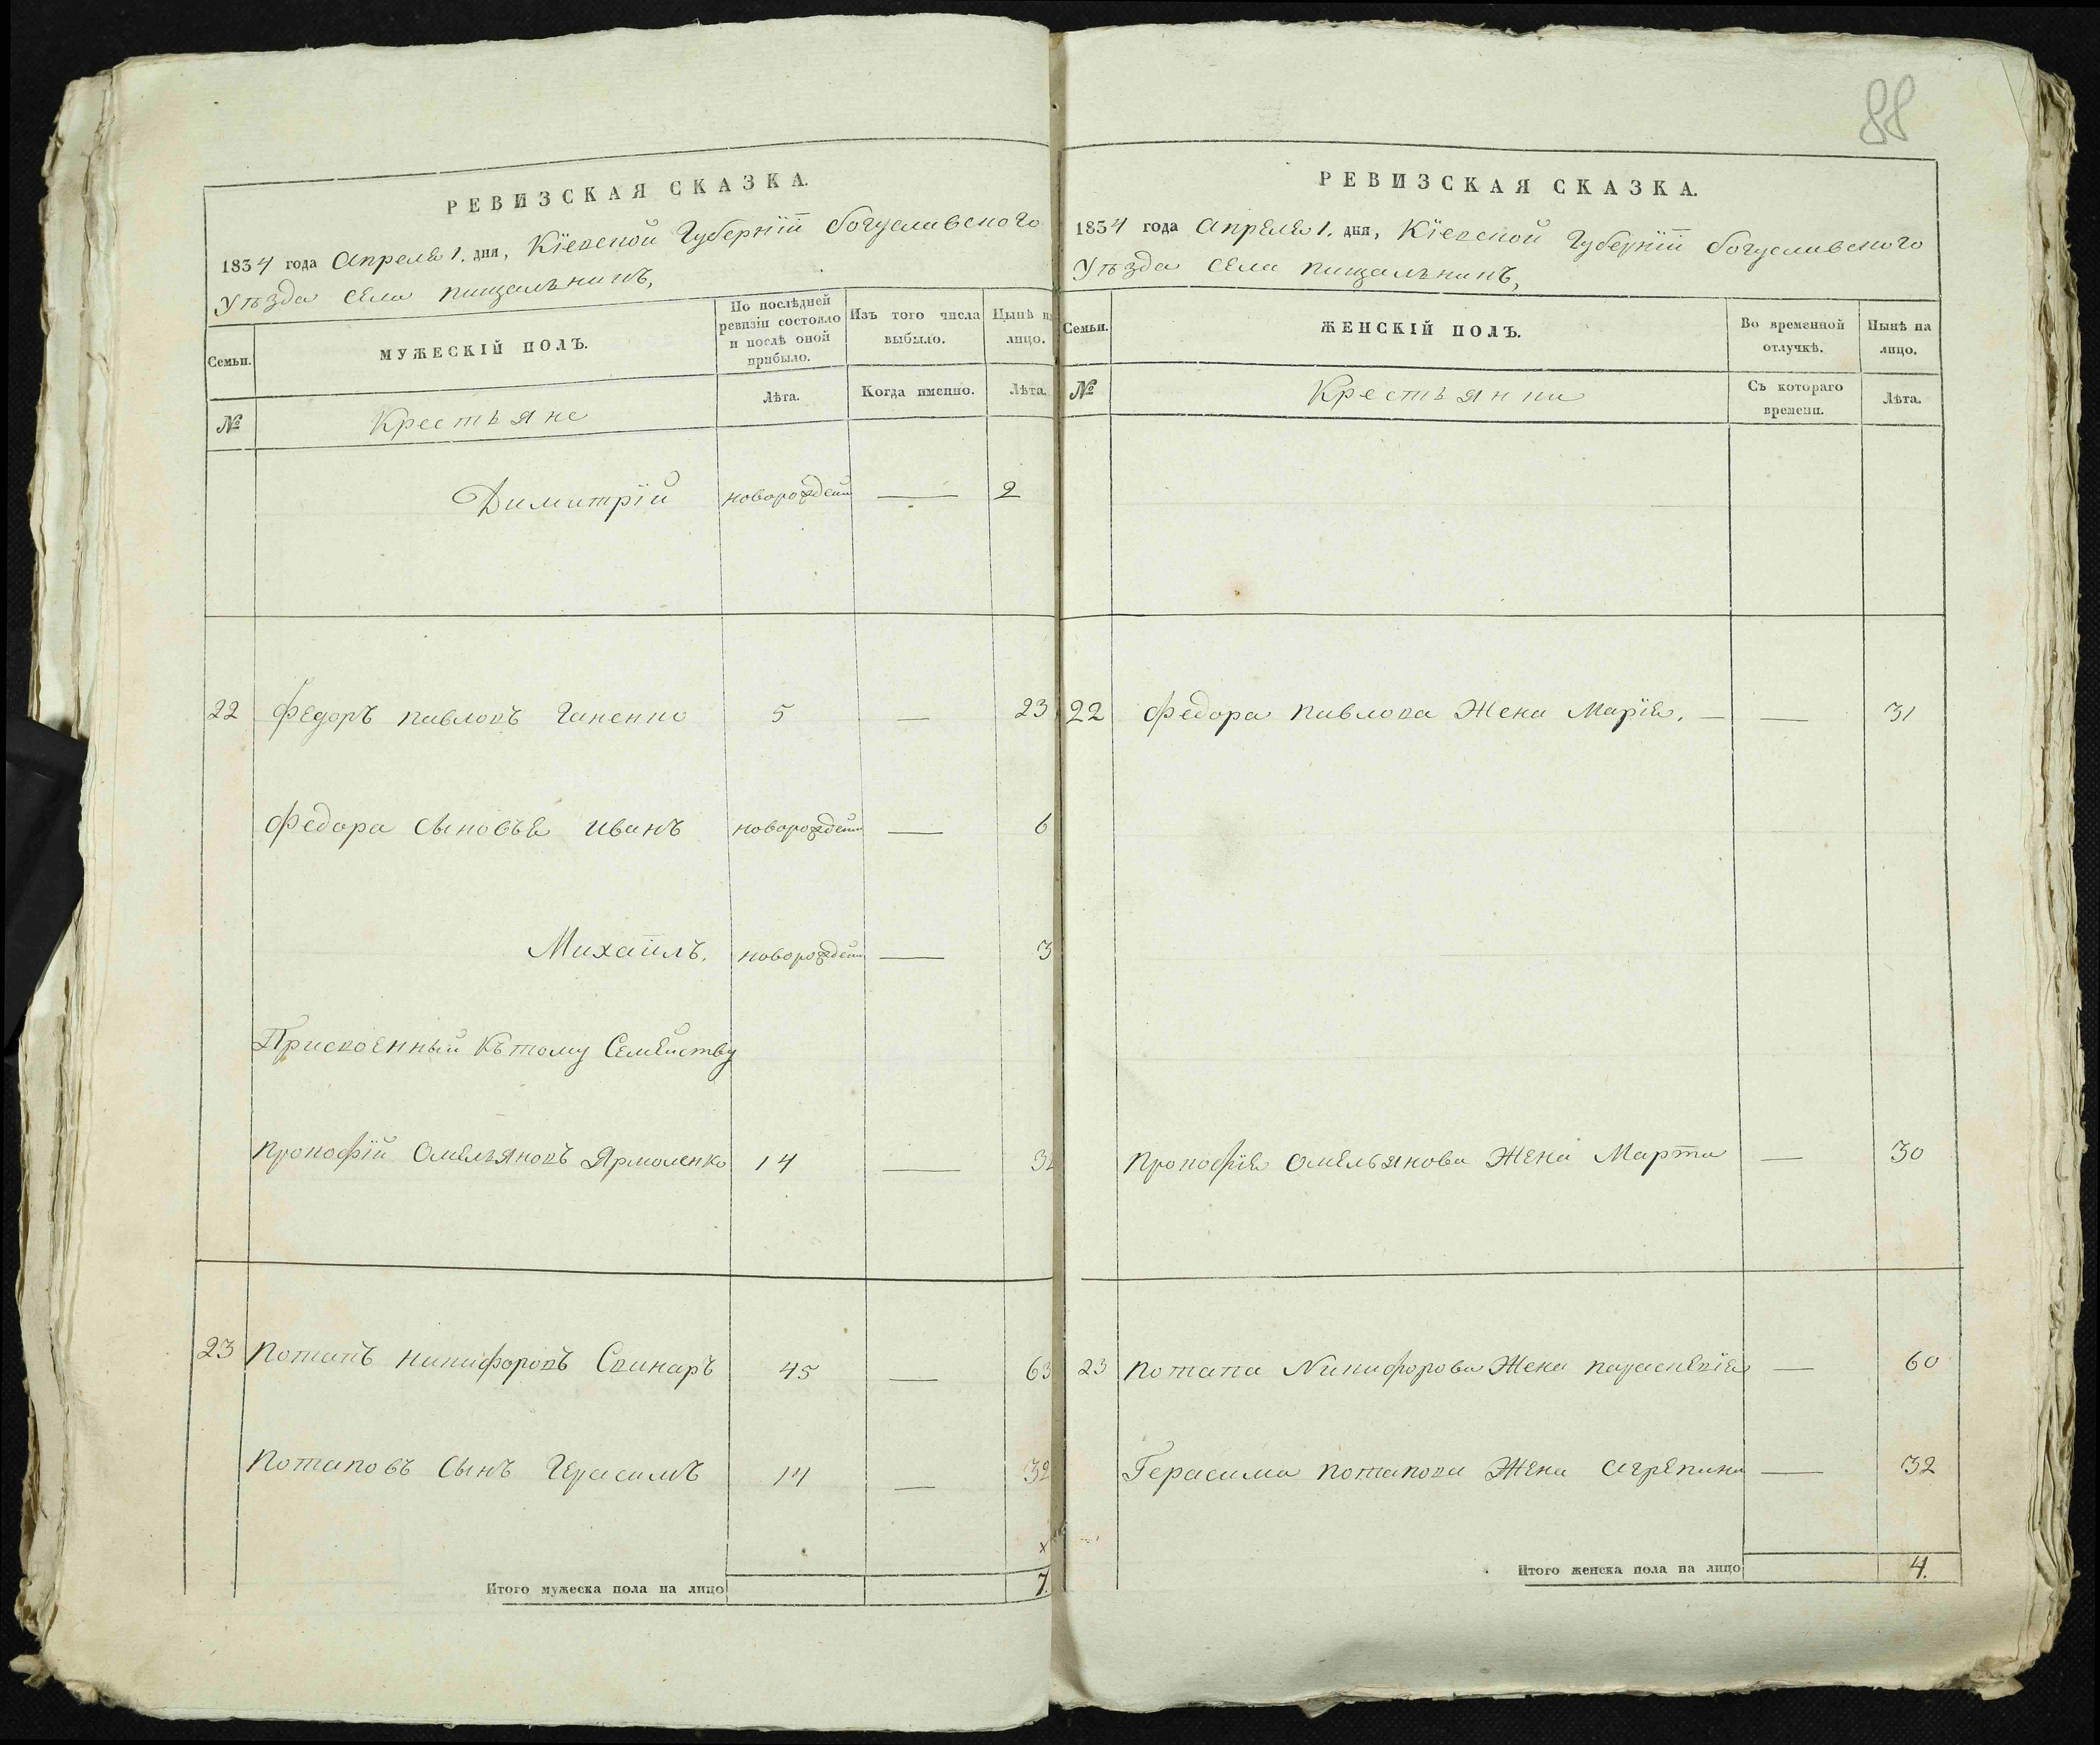 88
РЕВИЗСКАЯ СКАЗКА.
1834 года Апреля 1. дня, Кіевской Губерніи богуславского
Уѣзда села пищальникъ,
Семьи. МУЖЕСКІЙ ПОЛЪ. По послѣдней ревизіи состояло и послѣ оной прибыло. Изъ того числа выбыло. Нынѣ на лицо.
№ Крестьяне Лѣта. Когда именно. Лѣта.
Димитрій новорожден — 2
22 Федоръ павловъ Ганенко 5 — 23
Федора сыновья иванъ новорожден — 6
Михаилъ. новорожден — 3
Присвоенный Къ тому Семейству
прокофій Омельяновъ Ярмоленко 14 — 32
23 потапъ никифоровъ Свинаръ 45 — 63
потаповъ сынъ Герасимъ 14 — 32
Итого мужеска пола на лицо 7.
РЕВИЗСКАЯ СКАЗКА.
1834 года Апреля 1. дня, Кіевской Губерніи богуславского
Уѣзда села пищальникъ,
Семьи. ЖЕНСКІЙ ПОЛЪ. Во временной отлучкѣ. Нынѣ на лицо.
№ Крестьянки Съ котораго времени. Лѣта.
22 Федора павлова Жена Марія. — — 31
прокофія омельянова Жена Марта — 30
23 потапа Никифорова Жена параскевія — 60
Герасима потапова Жена агрепина — 32
Итого женска пола на лицо 4.